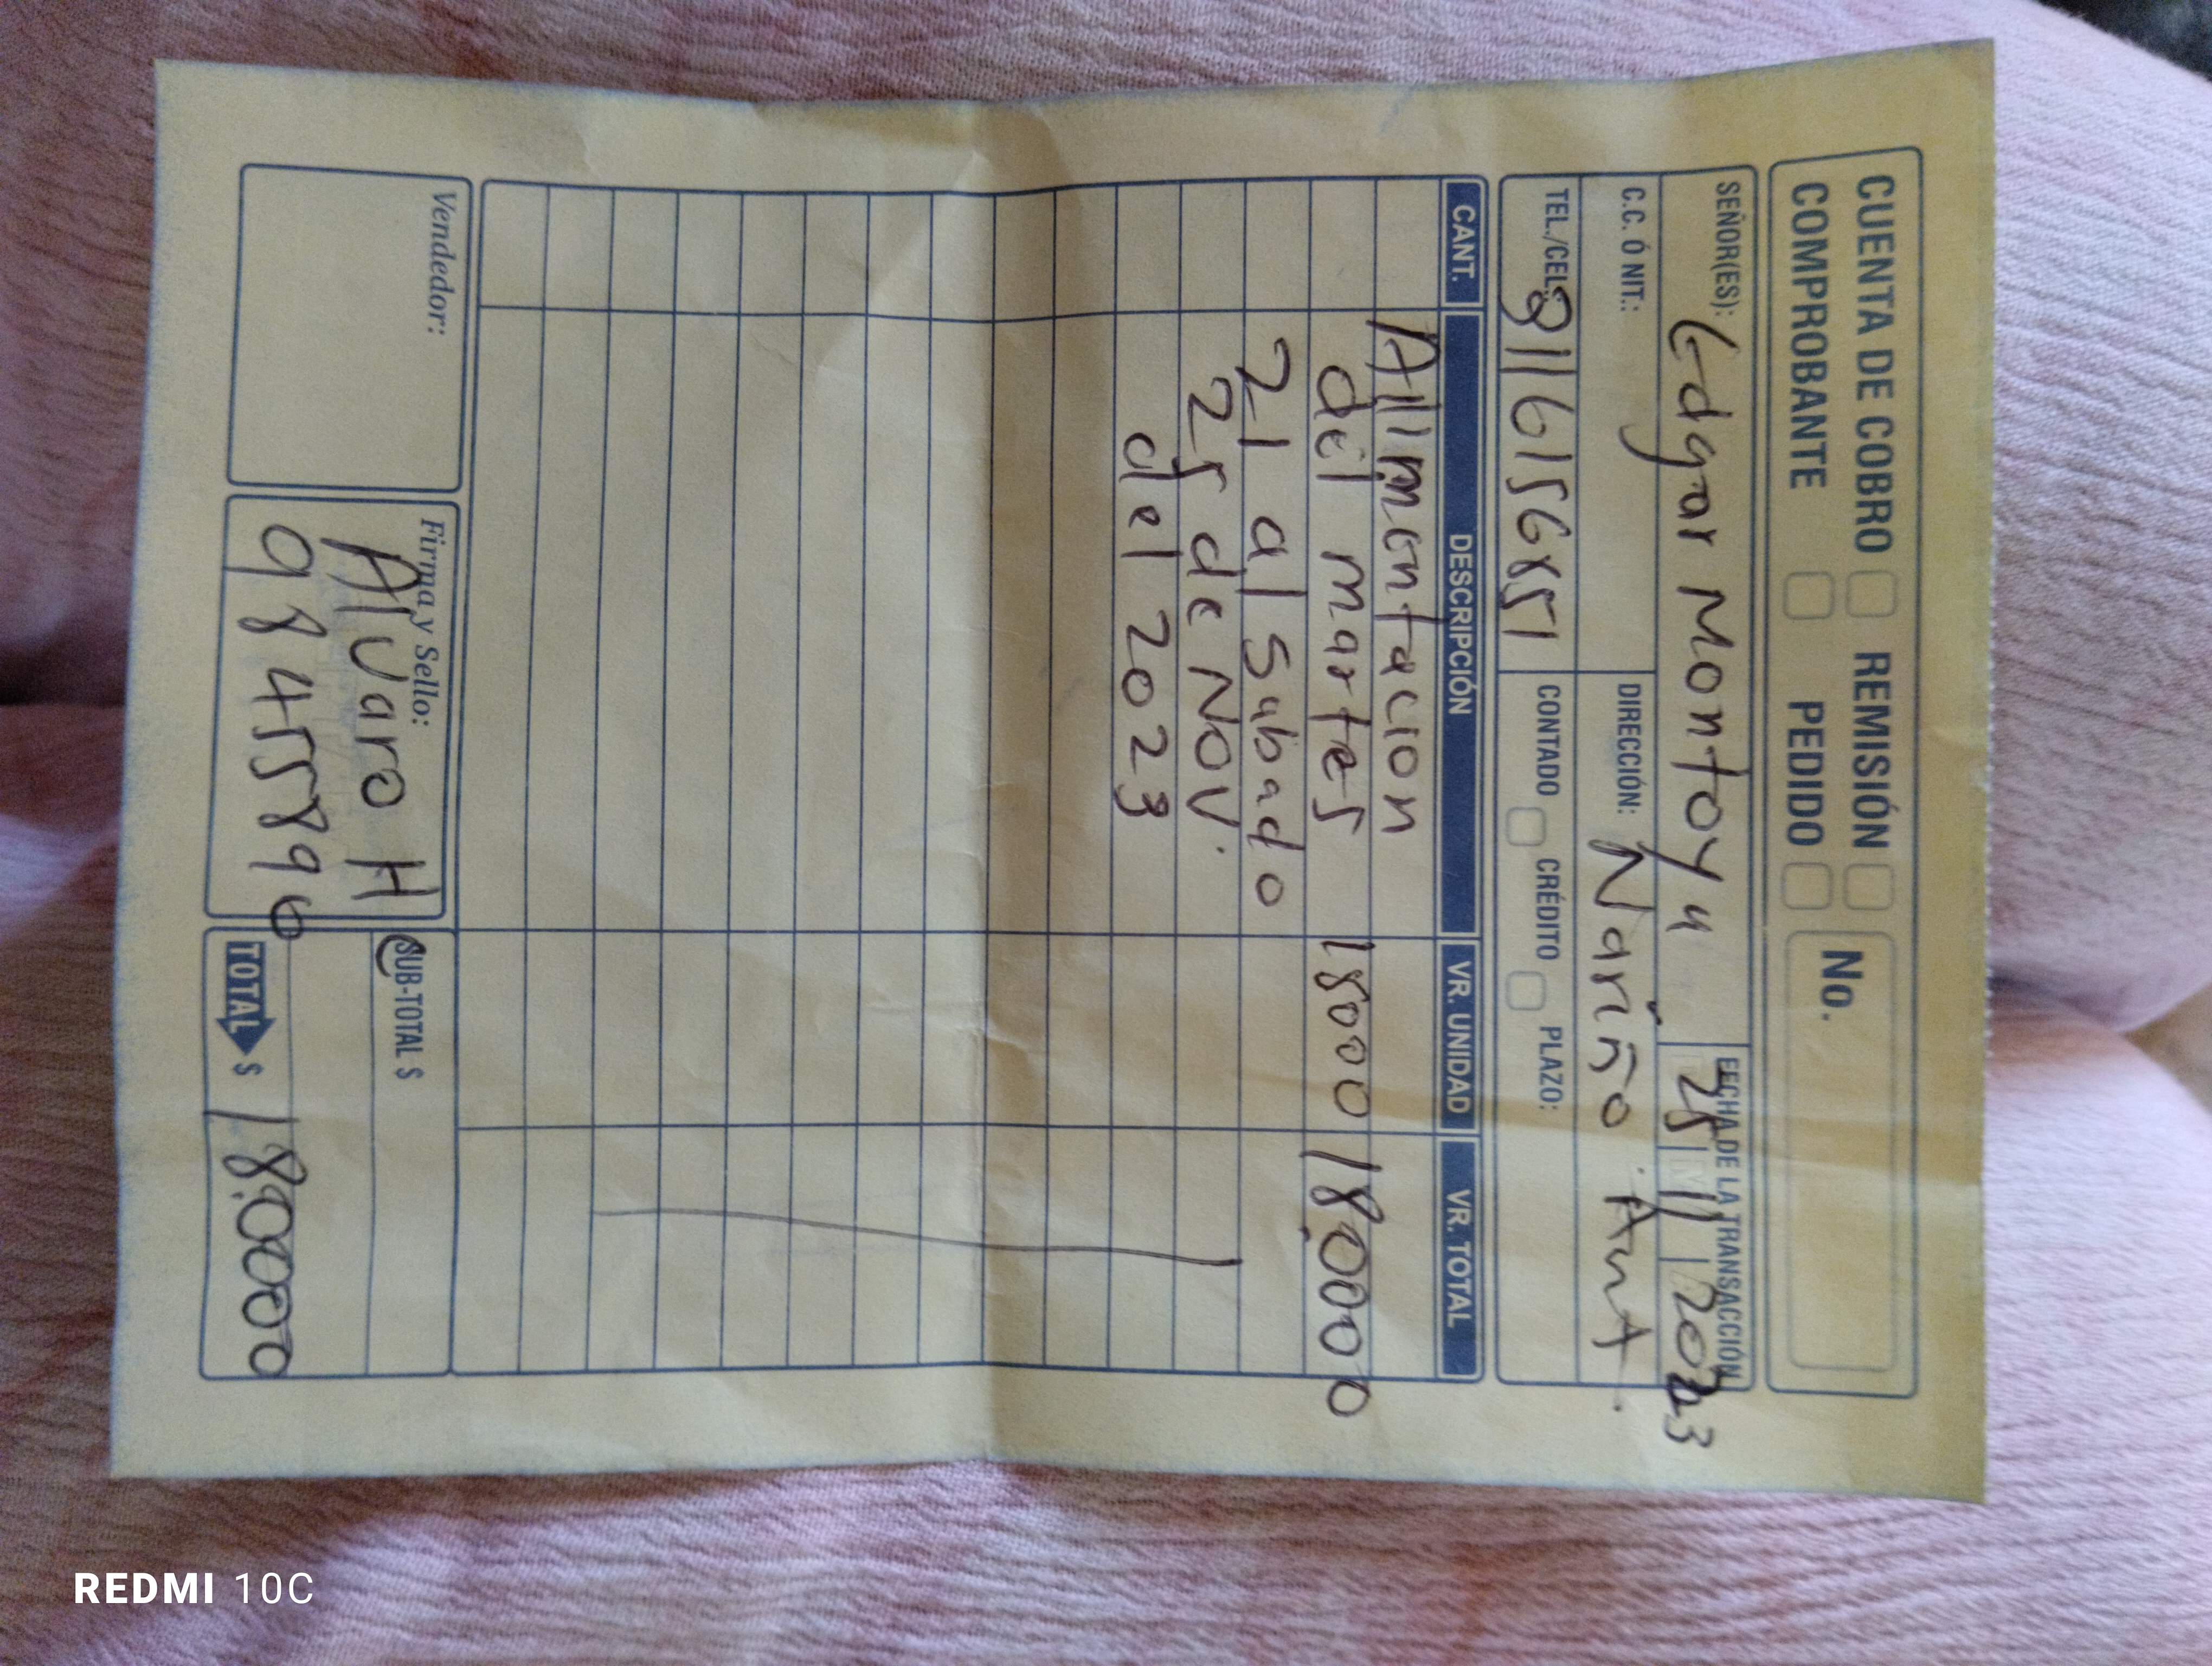 CUENTA DE COBRO REMISIÓN No.
COMPROBANTE PEDIDO
SEÑOR(ES): Edgar Montoya
FECHA DE LA TRANSACCIÓN
25 11 2023
C.C. Ó NIT.: DIRECCIÓN: Nariño Ant.
TEL./CEL.: CONTADO CRÉDITO PLAZO:
CANT. DESCRIPCIÓN VR. UNIDAD VR. TOTAL
Alimentacion
del martes 18000 180000
21 al Sabado
25 de Nov.
del 2023
Vendedor: Firma y Sello: SUB-TOTAL $
Alvaro H
98455896 TOTAL $ 180000
REDMI 10C